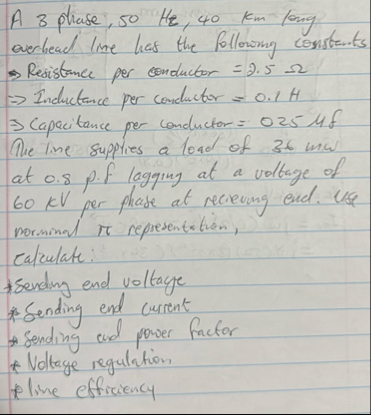 A 3 phase, 50 Hz, 40 km long
overhead line has the following constants
⇒ Resistance per conductor = 2.5 Ω
⇒ Inductance per conductor = 0.1 H
⇒ Capacitance per conductor = 0.25 Mf
The line supplies a load of 36 mw
at 0.8 p.f lagging at a voltage of
60 kV per phase at recieving end. Use
norminal π representation,
calculate:
* Sending end voltage
* Sending end current
* Sending end power factor
* Voltage regulation
* line efficiency